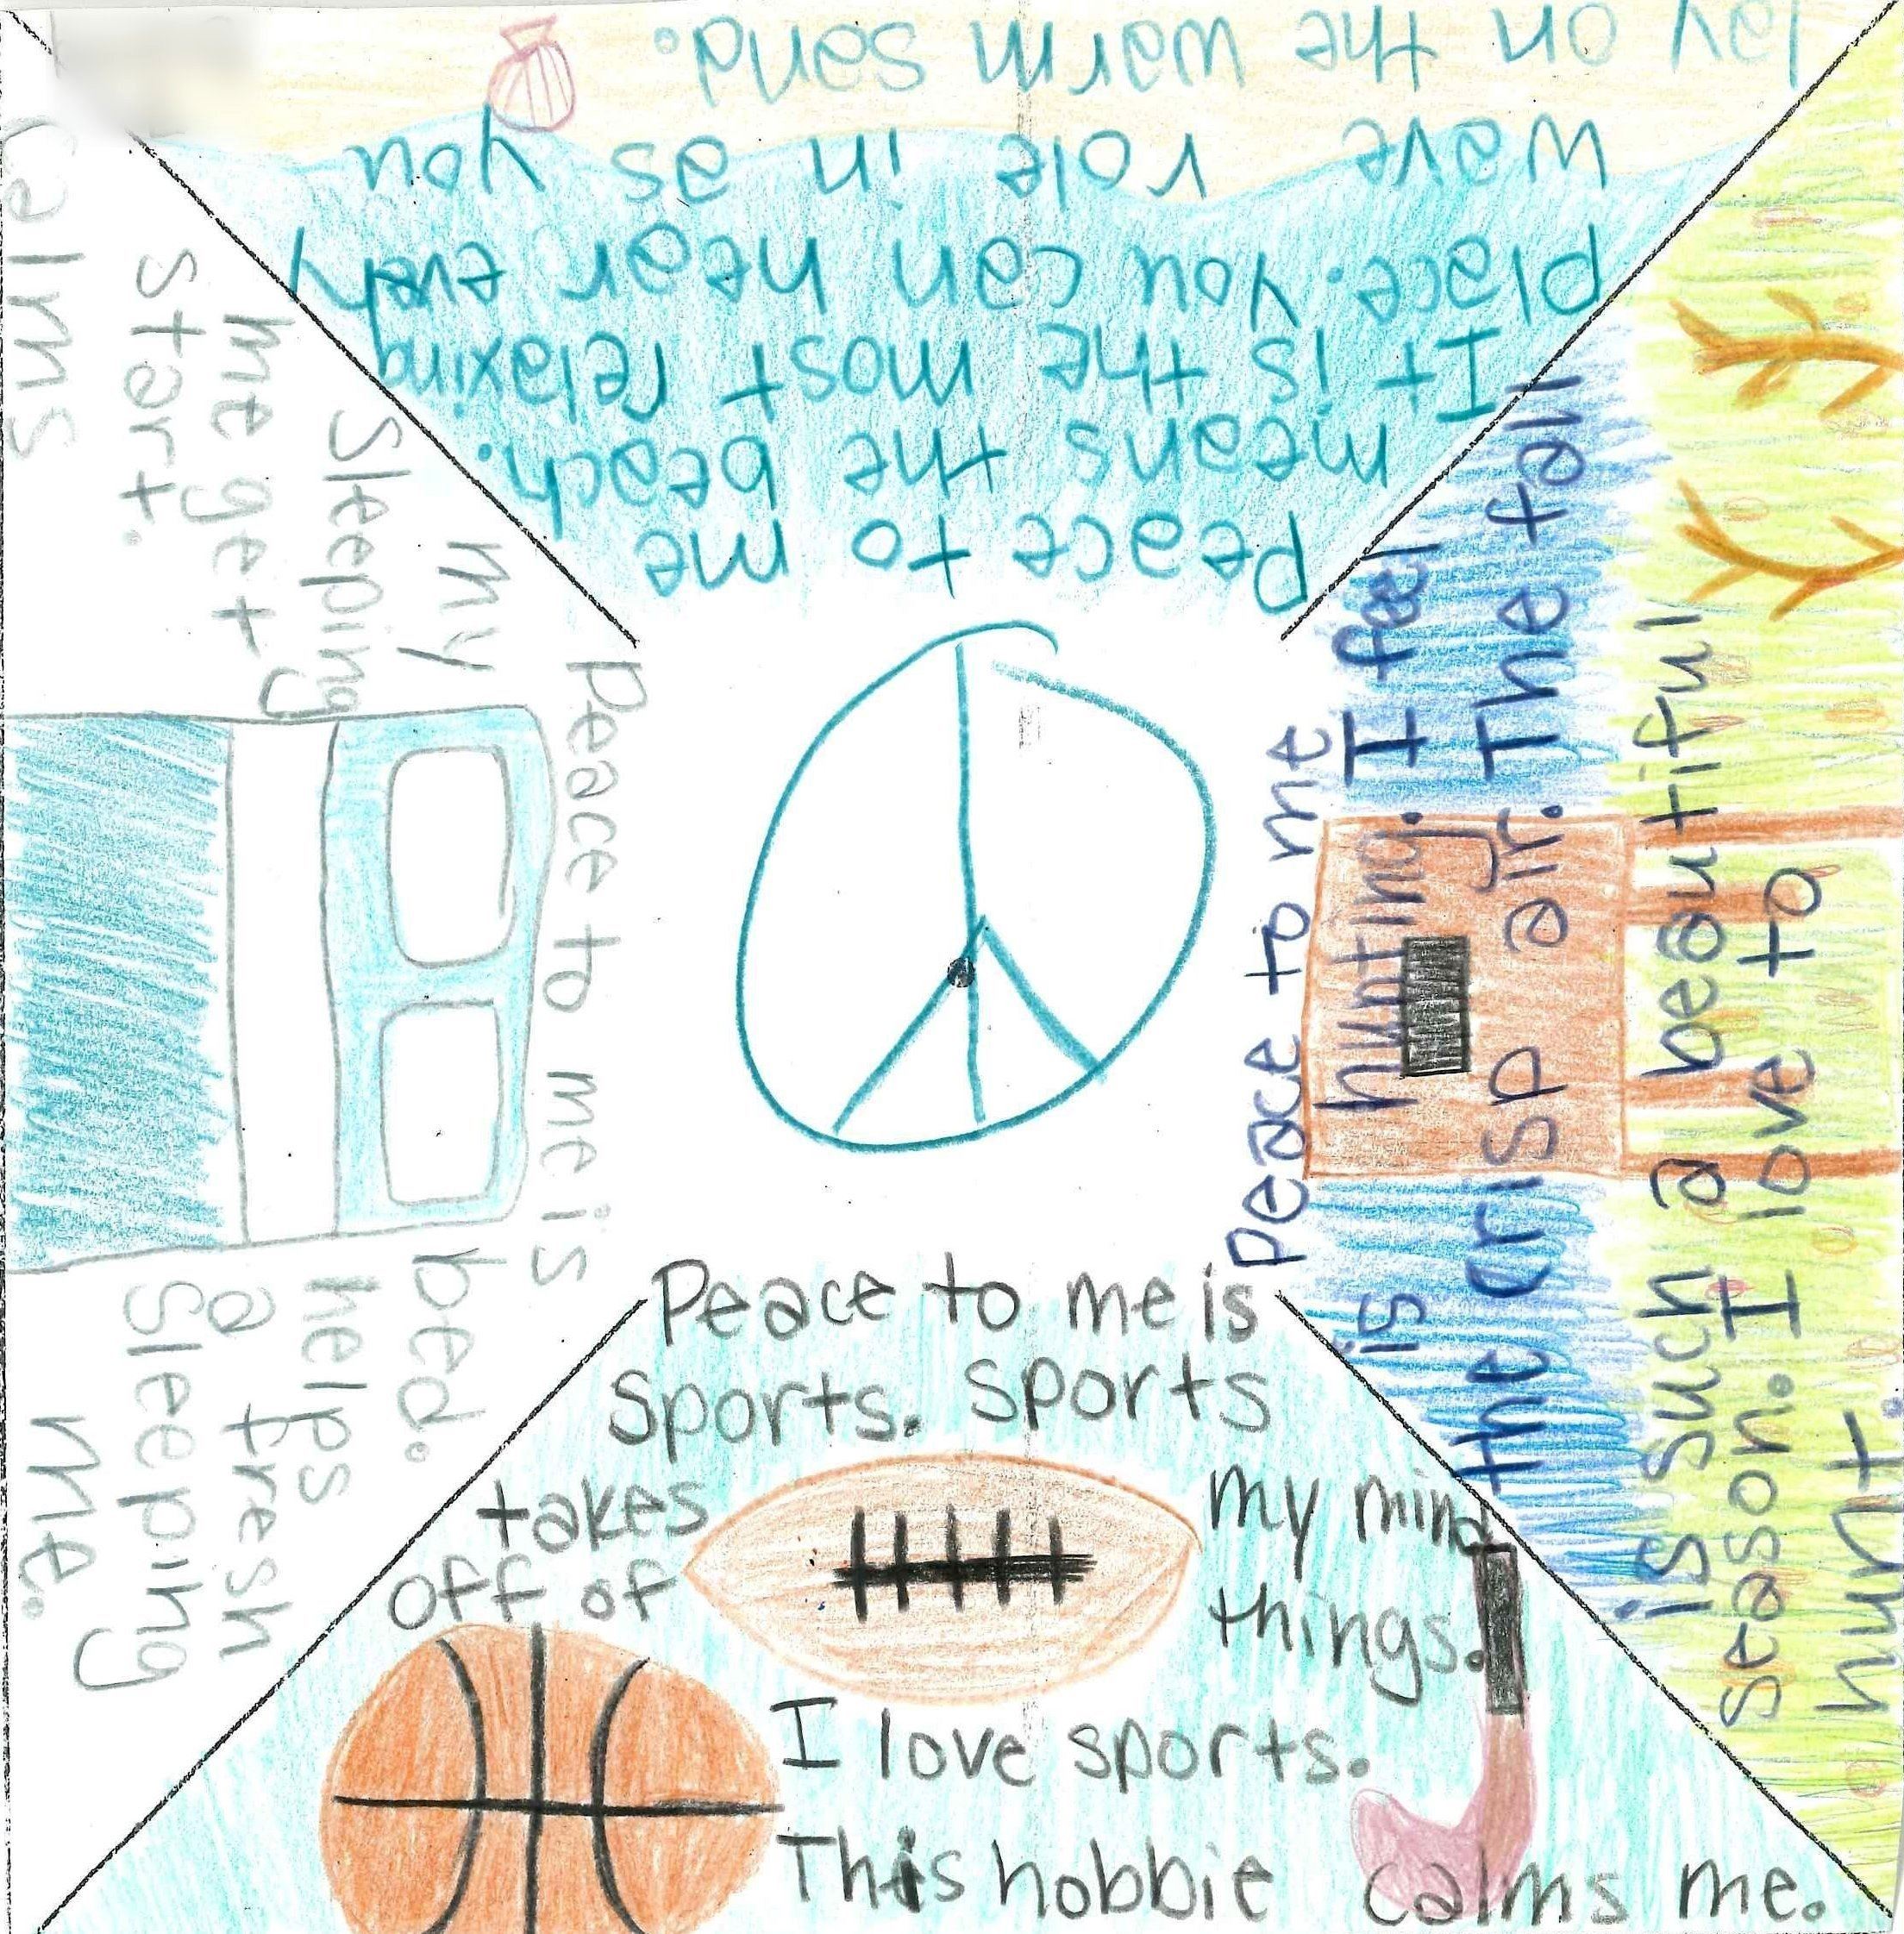 Peace to me
means the beach.
It is the most relaxing
place. You can hear every
wave role in as you
lay on the warm sand.
Peace to me
is hunting. I feel
the crisp air. The fall
is such a beautiful
season. I love to
hunt.
Peace to me is
Sports. sports
takes my mind
off of things.
I love sports.
This hobbie calms me.
Peace to me is
my bed.
Sleeping helps
me get a fresh
start. Sleeping
calms me.